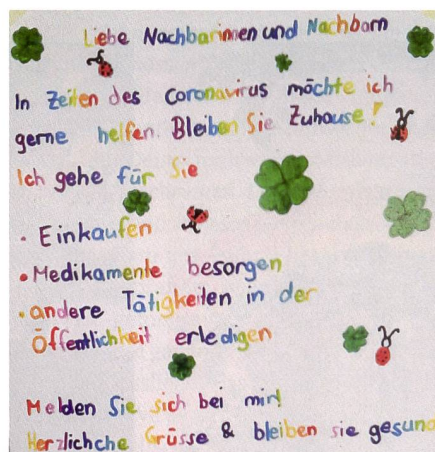 Liebe Nachbarinnen und Nachbarn
In Zeiten des Coronavirus möchte ich
gerne helfen. Bleiben Sie Zuhause!
Ich gehe für Sie
• Einkaufen
• Medikamente besorgen
• andere Tätigkeiten in der
Öffentlichkeit erledigen
Melden Sie sich bei mir!
Herzlichche Grüsse & bleiben sie gesund